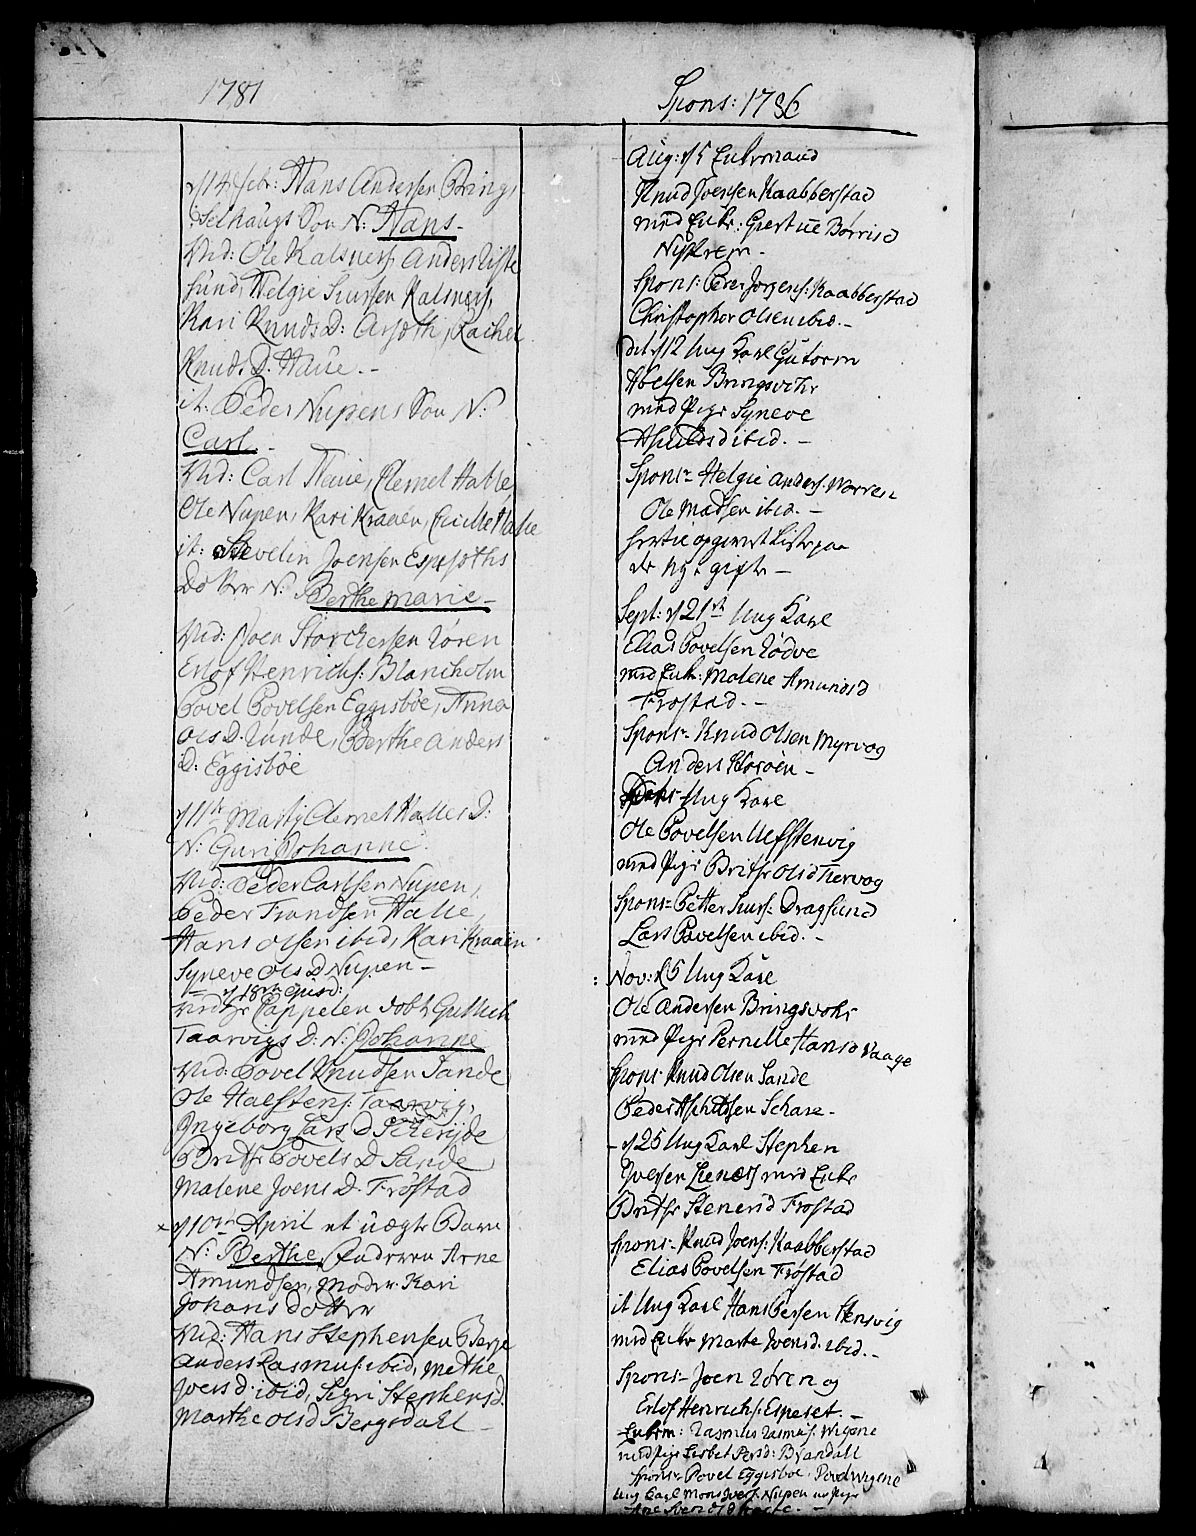 1781
d 14 Febr: Hans Andersen Brings
Selhaugs Søn N: Hans
Vid: Ole Kalsness, Anders Liste
sund, Helgie Siursen Kalsness,
Kari Knuds D: Aarsøth, Rachel
Knuds D. Haue. -
it: Peder Nupens Søn N:
Carl. -
Vid: Carl Haue, Clemet Halle,
Ole Nupen, Kari Kraaen, Cicille Halle
it: Stevelin Joensen Espesøths
Dotter N: Berthe Marie -
Vid: Joen Storchersen Røren
Erlof Henrichs: Blancholm
Povel Povelsen Eggisböe, Anna
Ols D. Runde, Berthe Anders
D: Eggisböe
d 11te Martij Clemet Halles D:
N: Guri Johanne.
Vid: Peder Carlsen Nupen,
Peder Frandsen Halle,
Hans Olsen ibid, Kari Kraaen
Syneve Ols D Nupen -
d 18de ejusd:
Hr Cappelen døbt Gullich
Taarvigs D: N: Johanne
Vid: Povel Knudsen Sande
Ole Halfstens: Taarvig,
Ingeborg Lars D
Brithe Povels D Sande
Malene Joens D. Frøstad
d 10de April et uægte Barn
N: Berthe, Faderen Arne
Amundsen, Moder Kari
Johans Dotter
Vid: Hans Stephensen Berge
Anders Rasmus: ibid, Methe
Joens d: ibid, Sigri Stephensd.
Marthe Olsd Bergsdall -
Spons: 1786
Aug: d 5 Enkemand
Knud Joensen Kaabberstad
med Enke: Giertrue Børrisd
Nipstrein -
Spons: Peder Jørgens: Kaabberstad
Christopher Olsen ibid. -
dit d 12 Ung Karl Gutorm
Abelsen Bringsvohr
med Pige Syneve
Asfuldsd ibid. -
Spons- Helgie Anders: Worren
Ole Madsen ibid. -
hertil opgivet Liste paa
de ny gifte -
Sept: d 21st Ung Karl
Elias Povelsen Rødve
med Enke: Malene Amundsd
Frøstad. -
Spons- Knud Olsen Myrvog
Anders Rosöen -
Ung Karl
Ole Povelsen Ulfstenvig
med Pige Brithe Olsd Tiervog
Spons- Petter Siurs: Dragsund
Lars Povelsen ibid. -
: Nov: d 5 Ung Karl
Ole Andersen Bringsvohr
med Pige Pernille Hansd Vaage
Spons: Knud Olsen Sande
Peder Aschildsen Schare -
- d 25 Ung Karl Stephen
Iversen Lieness med Enke
Brithe Stenersd Frøstad
Spons- Knud Joens: Kaabberstad
Elias Povelsen Frøstad
it Ung Karl Hans Persen Stensvig
med Enke Marte Joensd. ibid. -
Spons- Joen Røren og
Erlof Henrichs: Espeset. -
Enkem: Rasmus Rasmus: Wigene
med Pige Lisbet Persd: Brandall
Spons- Povel Eggisböe, Povel Wigene
Ung Karl Mons Ivers: Nupen m Pige
Ane Svends d